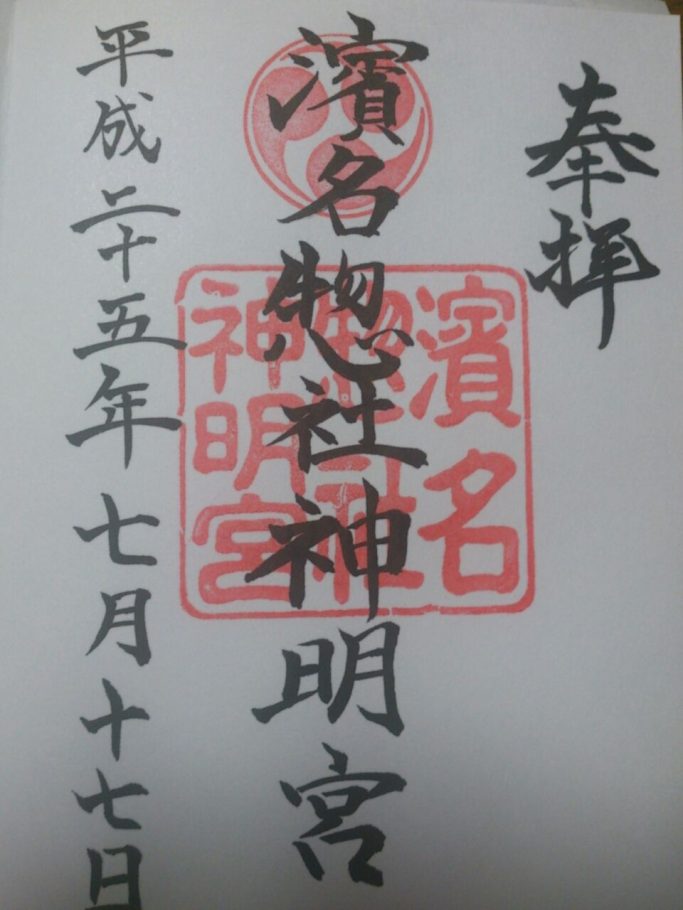 奉拝
濱名惣社神明宮
濱名
惣社
神明宮
平成二十五年七月十七日